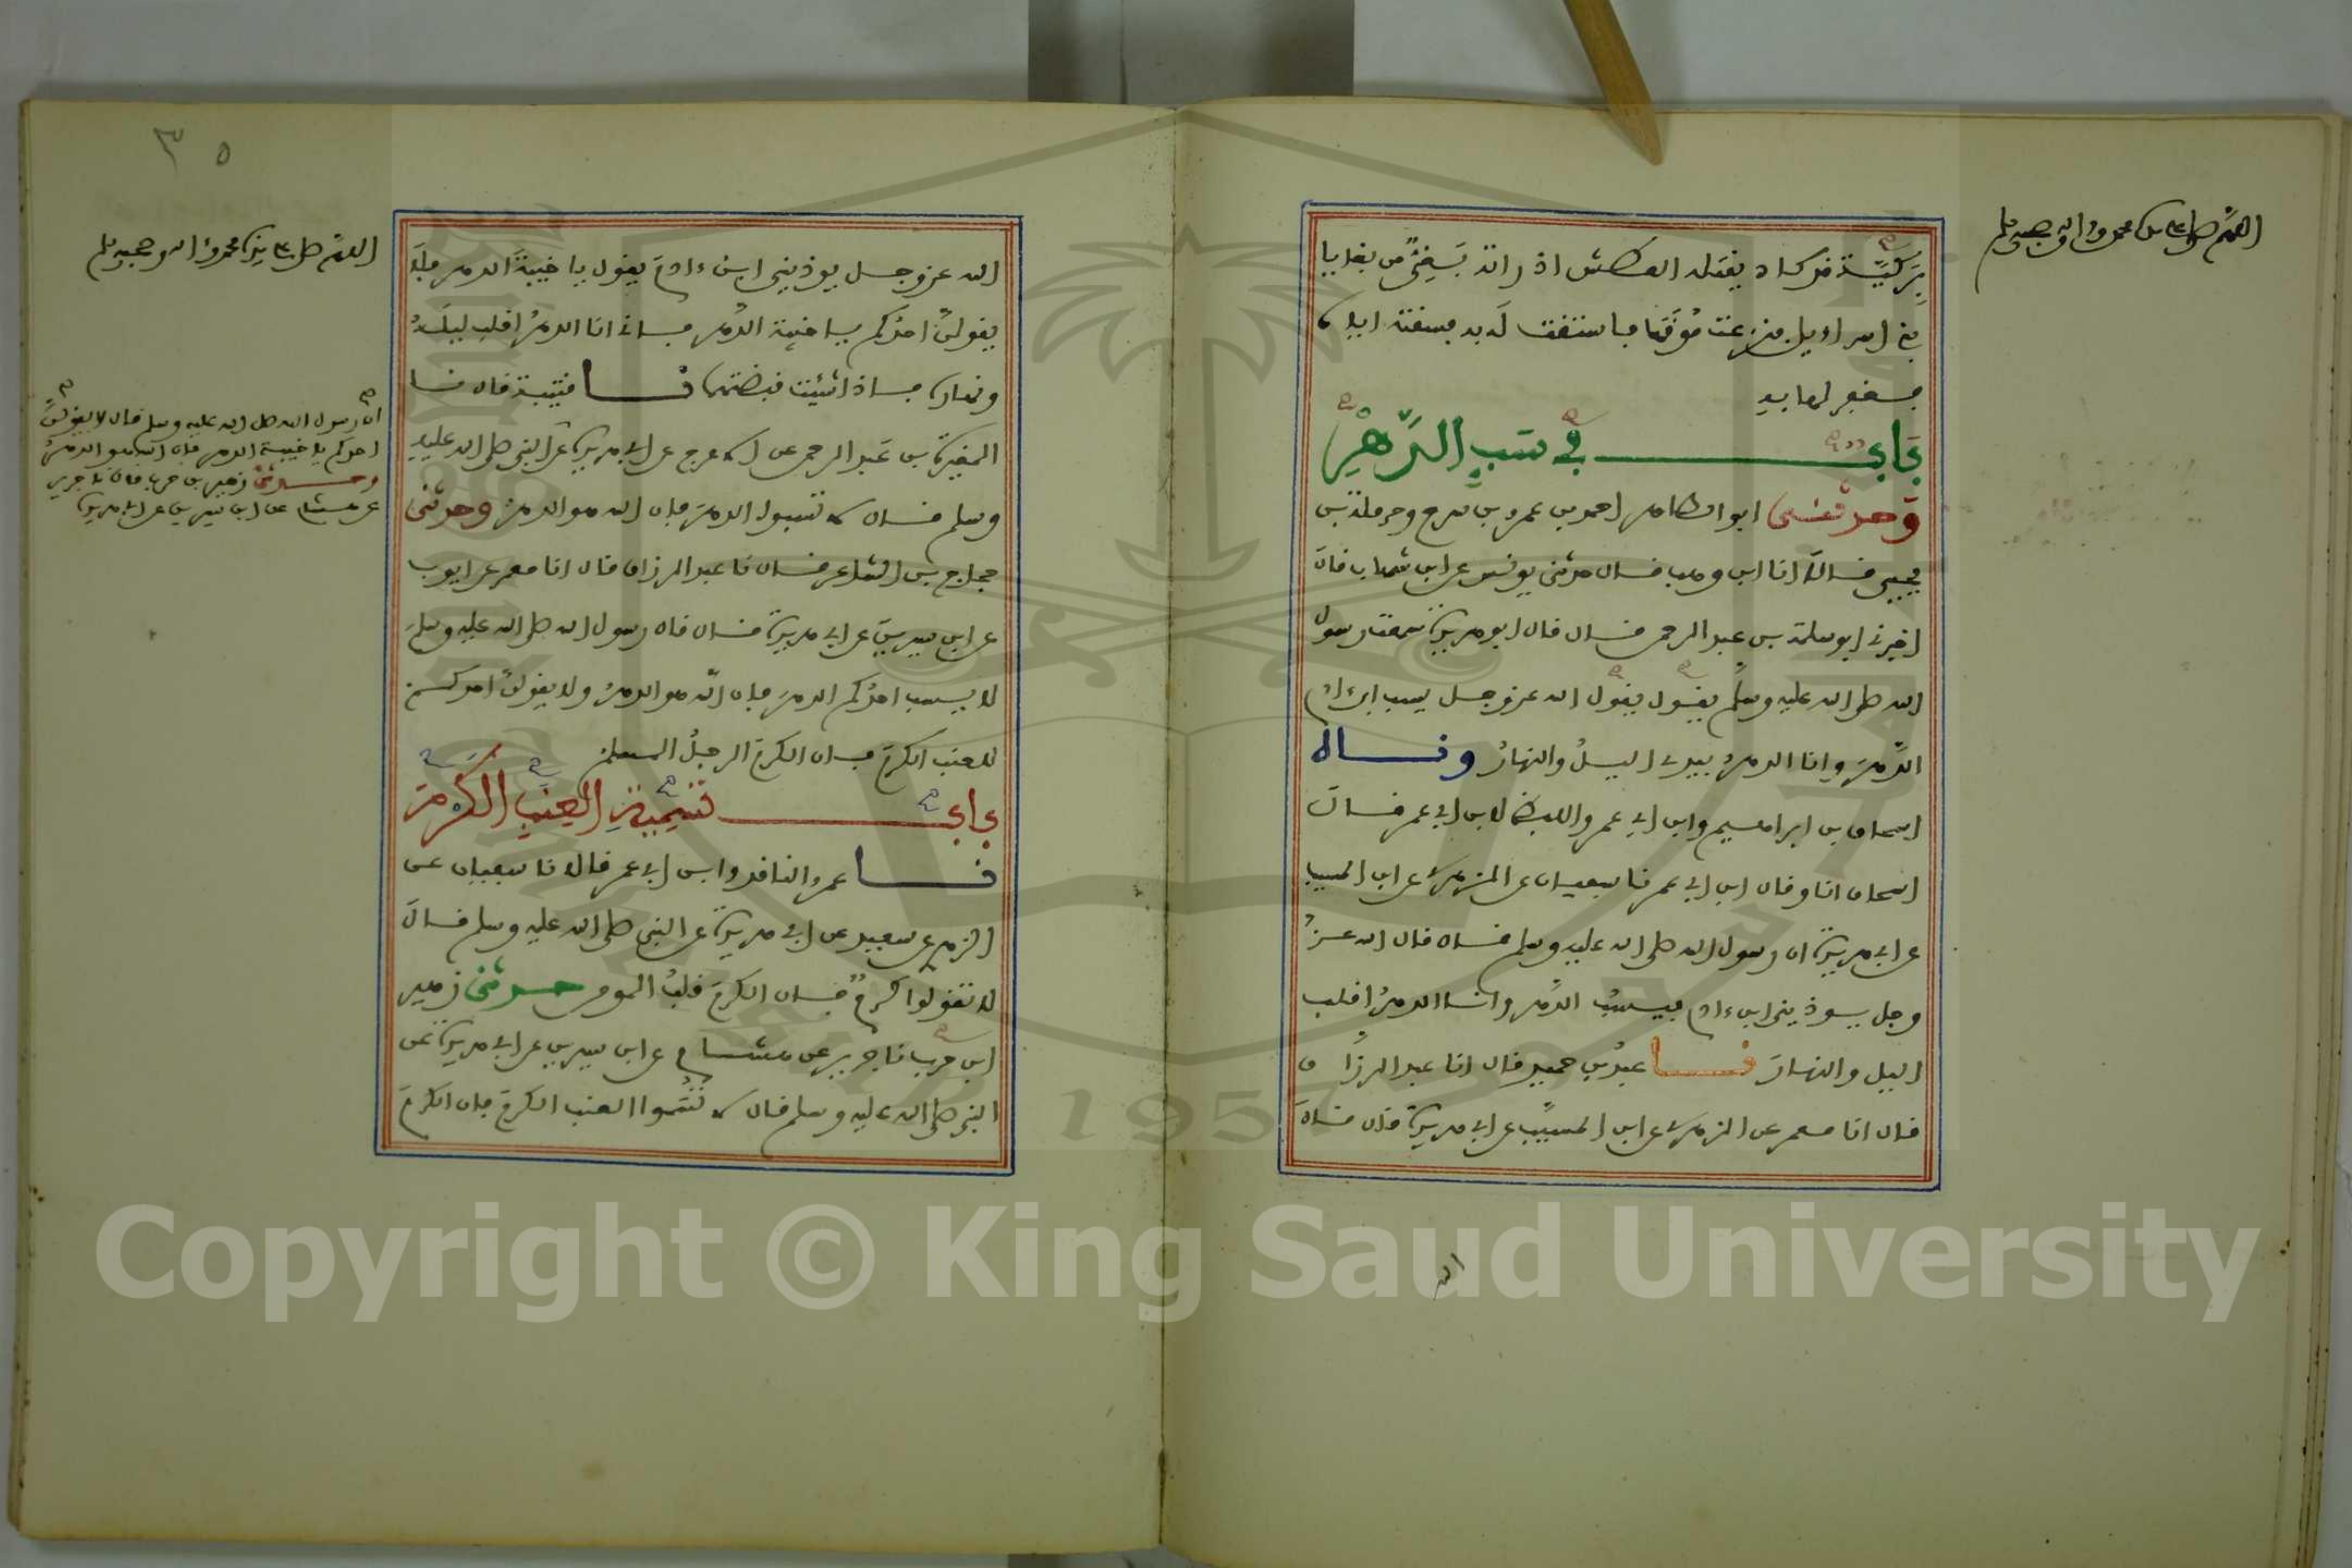 اللهم صل على سيدنا محمد وءاله وصحبه وسلم
بركية قد كاد يقتله العطش اذ راته بغي من بغايا
بني اسراءيل فنزعت موقها فاستقت له به فسقته اياه
فغفر لها به
باب في سب الدهر
وحدثني ابو الطاهر احمد بن عمرو بن سرح وحرملة بن
يحيى قالا انا ابن وهب قال حدثني يونس عن ابن شهاب قال
اخبرني ابو سلمة بن عبد الرحمن قال قال ابو هريرة سمعت رسول
الله صلى الله عليه وسلم يقول يقول الله عز وجل يسب ابن ءادم
الدهر وانا الدهر بيدي الليل والنهار ونا
اسحاق بن ابراهيم وابن ابي عمر واللفظ لابن ابي عمر قال
اسحاق انا وقال ابن ابي عمر نا سفيان عن الزهري عن ابن المسيب
عن ابي هريرة ان رسول الله صلى الله عليه وسلم قال قال الله عز
وجل يوذيني ابن ءادم يسب الدهر وانا الدهر اقلب
الليل والنهار نا عبد بن حميد قال انا عبد الرزاق
قال انا معمر عن الزهري عن ابن المسيب عن ابي هريرة قال قال
الله
٣٥
اللهم صل على سيدنا محمد وءاله وصحبه وسلم
الله عز وجل يوذيني ابن ءادم يقول يا خيبة الدهر فلا
يقولن احدكم يا خيبة الدهر فاني انا الدهر اقلب ليله
ونهاره فاذا شيت قبضتهما نا قتيبة قال نا
المغيرة بن عبد الرحمن عن الاعرج عن ابي هريرة عن النبي صلى الله عليه
وسلم قال لا تسبوا الدهر فان الله هو الدهر وحدثني
حجاج بن الشاعر قال نا عبد الرزاق قال انا معمر عن ايوب
عن ابن سيرين عن ابي هريرة قال قال رسول الله صلى الله عليه وسلم
لا يسب احدكم الدهر فان الله هو الدهر ولا يقولن احدكم
للعنب الكرم فان الكرم الرجل المسلم
باب تسمية العنب الكرم
نا عمرو الناقد وابن ابي عمر قالا نا سفيان عن
الزهري عن سعيد عن ابي هريرة عن النبي صلى الله عليه وسلم قال
لا تقولوا كرم فان الكرم قلب المومن حدثني زهير
ابن حرب نا جرير عن هشام عن ابن سيرين عن ابي هريرة عن
النبي صلى الله عليه وسلم قال لا تسموا العنب الكرم فان الكرم
ان رسول الله صلى الله عليه وسلم قال لا يقولن
احدكم يا خيبة الدهر فان الله هو الدهر
وحدثني زهير بن حرب قال نا جرير
عن هشام عن ابن سيرين عن ابي هريرة
Copyright © King Saud University
1957